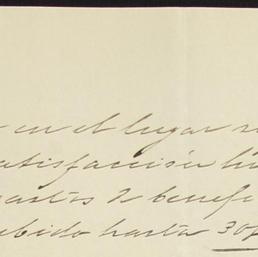 en el lugar
satisfacción
gastos de benefi
cibido hasta 30